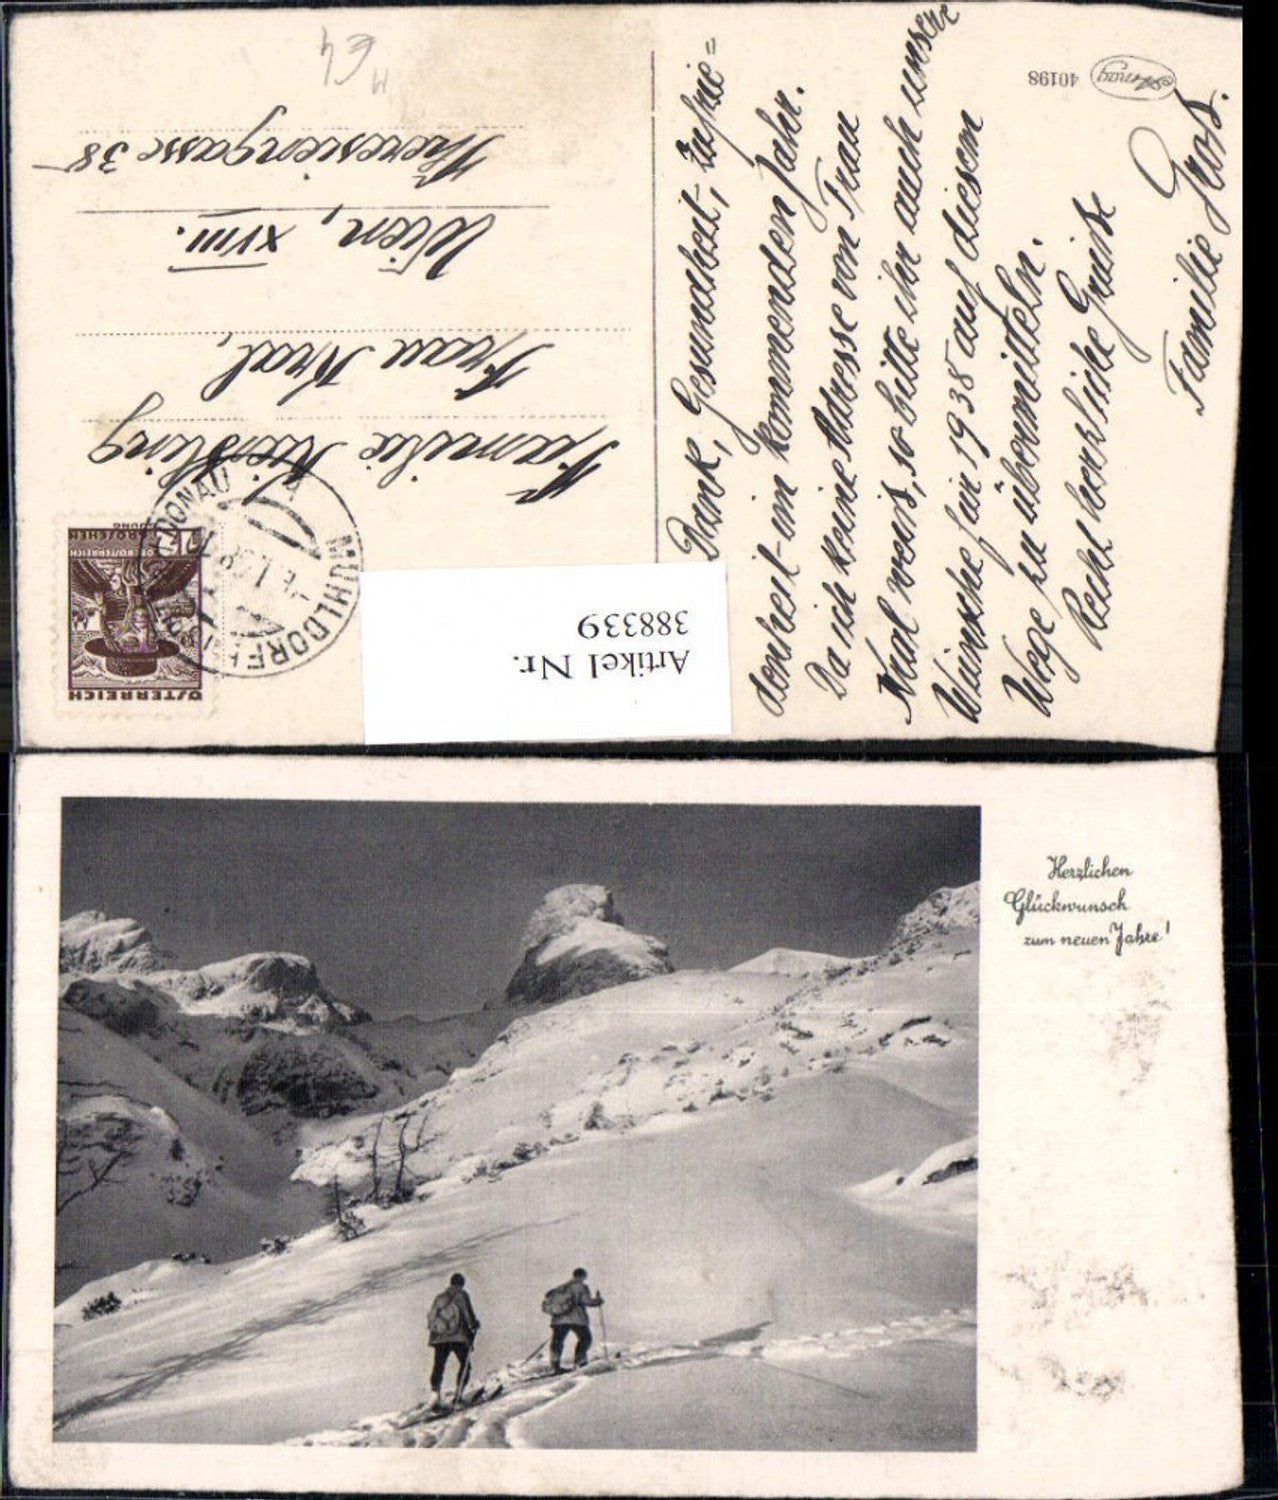 Familie Kiesling
Frau Kral,
Wien, XVIII.
Theresiengasse 38
Dank, Gesundheit, Zufrie=
denheit im kommenden Jahr.
Da ich keine Adresse von Frau
Kral weiß, so bitte ihr auch unsere
Wünsche für 1938 auf diesem
Wege zu übermitteln.
Recht herzliche Grüße
Familie Groß.
40198
ÖSTERREICH
GROSCHEN
MÜHLDORF
DONAU
Artikel Nr.
388339
Herzlichen
Glückwunsch
zum neuen Jahre!